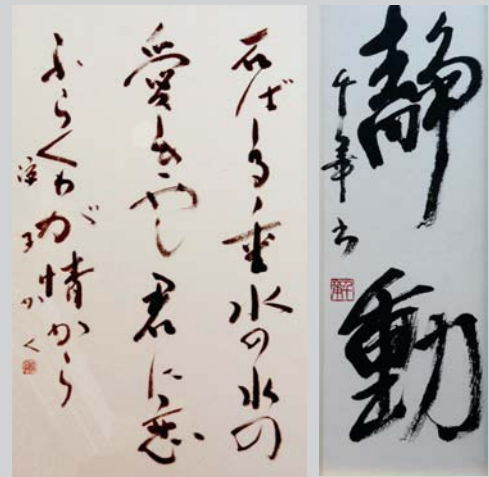 石ばしる垂水の水の
愛きやし君に恋
ふらくわが情から
子かく
静動
千華書